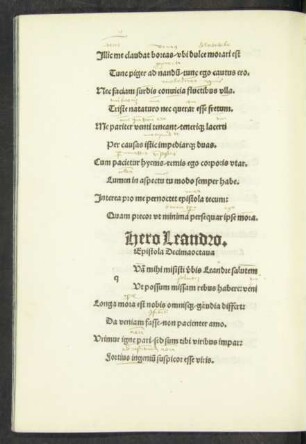 Illic me claudat boreas vbi dulce morari est
Tunc piger ad nandū tunc ego cautus ero.
Nec faciam surdis conuicia fluctibus vlla.
Triste nataturo nec querar esse fretum.
Me pariter venti teneant tenerique lacerti
Per causas istic impediarque duas.
Cum pacietur hyems remis ego corporis vtar.
Lumen in aspectu tu modo semper habe.
Interea pro me pernoctet epistola tecum:
Quam precor vt minima persequar ipse mora.
Hero Leandro.
Epistola Decimaoctaua
Uā mihi misisti v̄bis Leandre salutem
q
Ut possum missam rebus habere: veni
Longa mora est nobis omnisque gaudia differt:
Da veniam fasse non pacienter amo.
Urimur igne pari sed sum tibi viribus impar:
Fortius ingeniū suspicor esse viris.